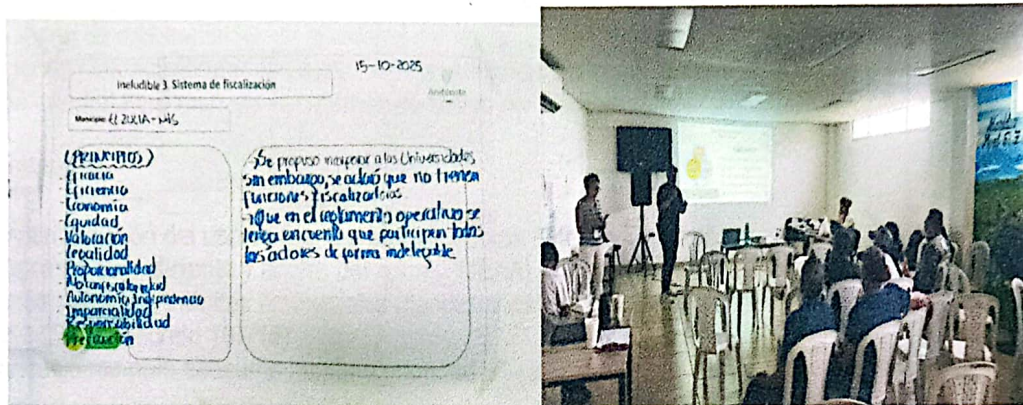 15-10-2025
Ineludible 3. Sistema de fiscalización
Municipio: EL ZULIA - N/S
(PRINCIPIOS)
- Eficacia
- Eficiencia
- Economía
- Equidad
- Valoración
- Legalidad
- Proporcionalidad
- Autonomía, Independencia
- Imparcialidad
- Responsabilidad
- Precaución
- Se propuso incorporar a las Universidades
sin embargo, se aclaró que no tienen
funciones fiscalizadoras
- Que en el reglamento operativo se
tenga en cuenta que participen todos
los actores de forma indelegable